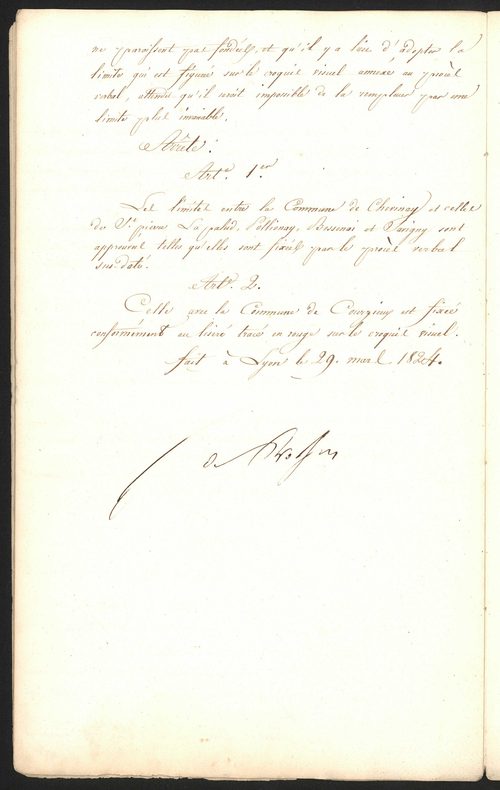 ne paroissent pas fondés, et qu'il y a lieu d'adopter la
limite qui est figurée sur le croquis visuel annexé au procès
verbal, attendu qu'il seroit impossible de la remplacer par une
limite plus invariable.
Arrête:
Art.e 1.er
Les limites entre la Commune de Chevinay et celles
de St. pierre Lapalud, Pollionay, Bessenai et Savigny sont
approuvées telles qu'elles sont fixées par le procès verbal
susdaté.
Art.e 2.
Celle avec la Commune de Courzieux est fixée
conformément au liséré tracé en rouge sur le croquis visuel.
fait à Lyon le 29. mars 1824.